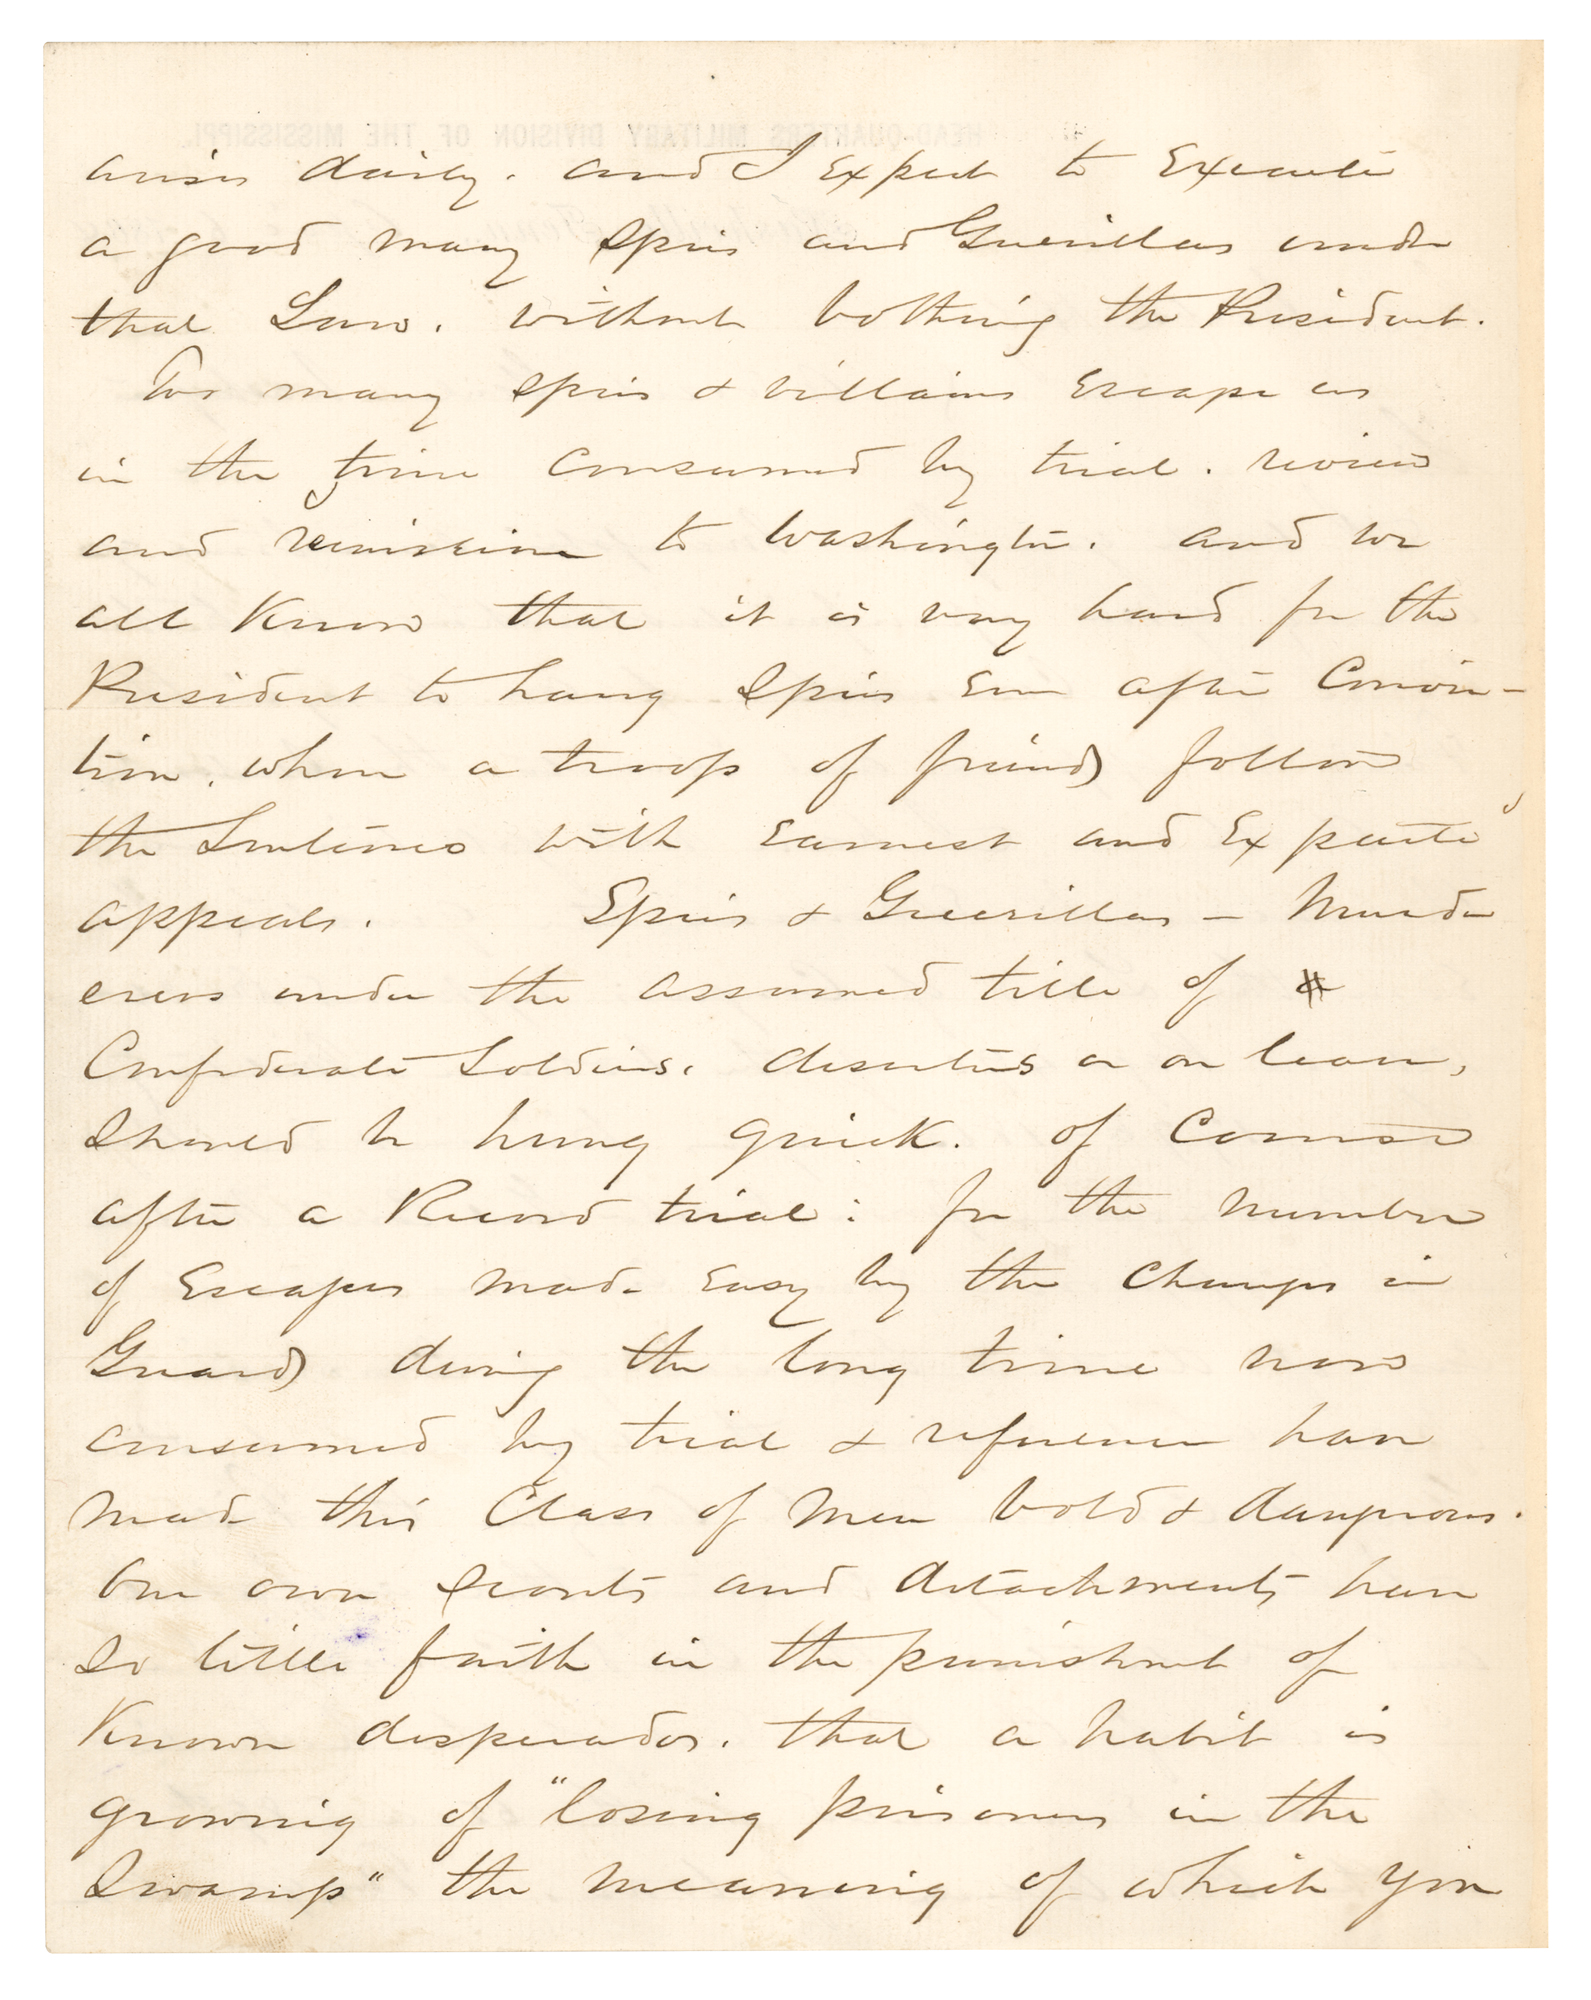 arises daily. and I expect to Execute
a good many Spies and Guerillas under
that Law. without bothring the President.
Too many spies & villains Escape us
in the time consumed by trial. review
and remission to Washington. and we
all Know that it is very hard for the
President to hang Spies even after Convic-
tion. when a troop of friends follow
the Sentence with earnest and Ex parte
appeals. Spies & Guerillas — Murd-
erers under the assumed title of
Confederate Soldiers. deserters or on leave,
Should be hung quick. of Course
after a Record trial: for the number
of Escapes made Easy by the Changes in
Guards during the long time now
consumed by trial & reference have
made this Class of Men bold & dangerous.
Our own Scouts and detachments have
so little faith in the punishment of
Known desperados. that a habit is
growing of "losing prisoners in the
Swamp" the meaning of which you